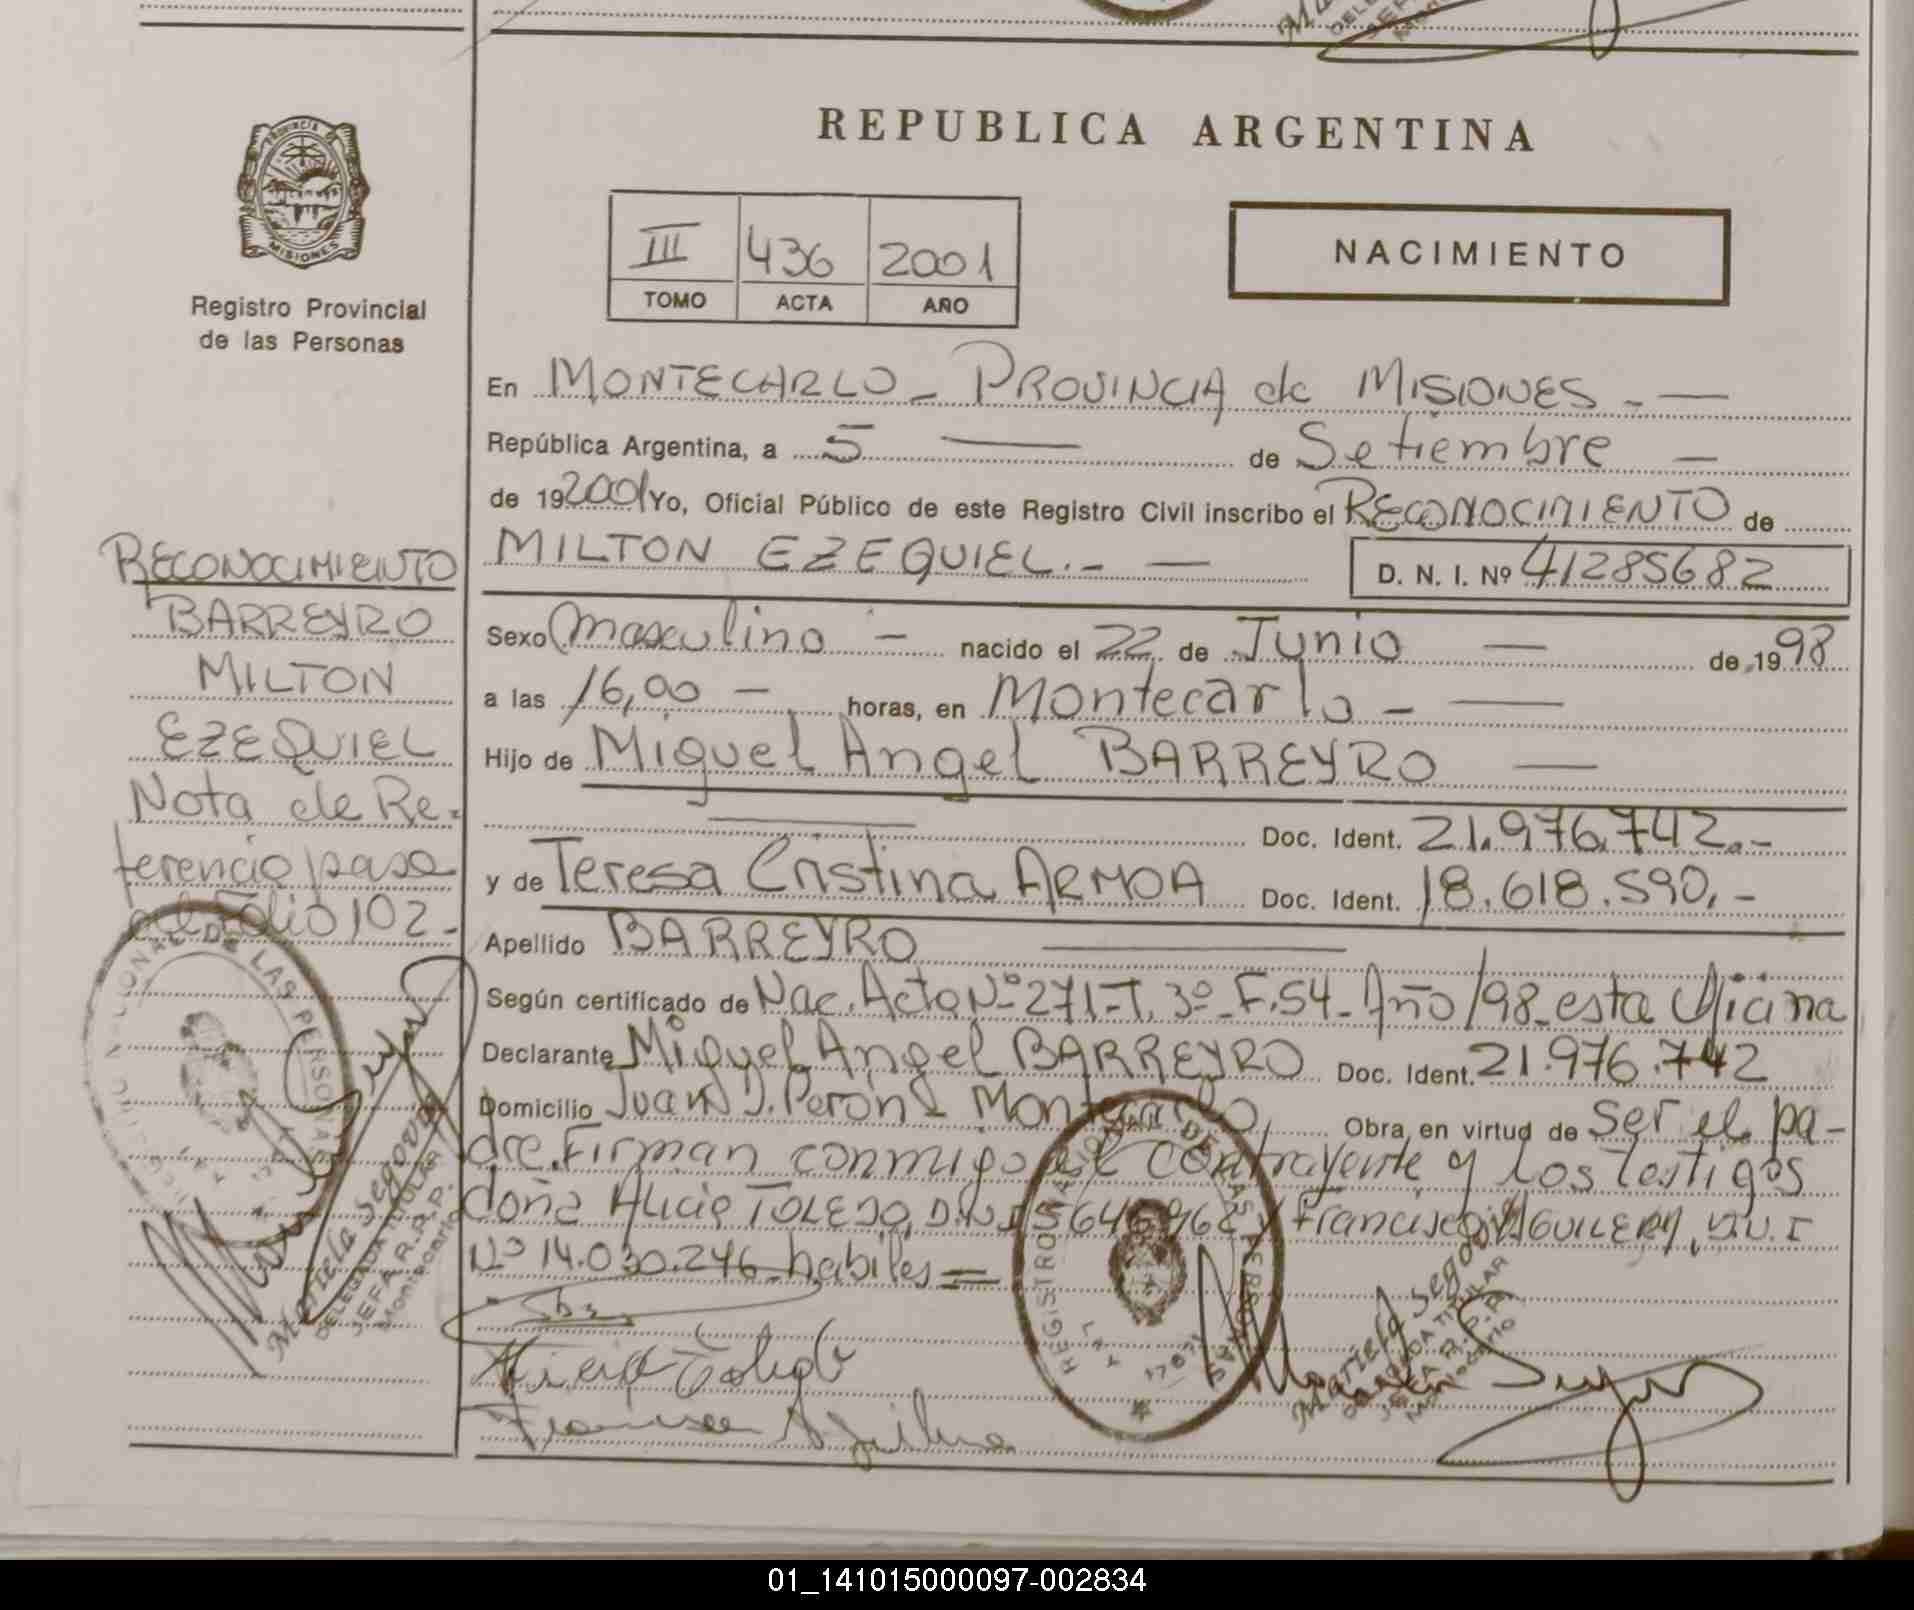 REPUBLICA ARGENTINA
PROVINCIA DE
MISIONES
Registro Provincial
de las Personas
III 436 2001
TOMO ACTA AÑO
NACIMIENTO
En MONTECARLO - PROVINCIA de MISIONES - —
República Argentina, a 5 — de Setiembre —
de 19 2001 Yo, Oficial Público de este Registro Civil inscribo el RECONOCIMIENTO de
MILTON EZEQUIEL.- — D. N. I. Nº 41285682
Sexo Masculino — nacido el 22 de Junio — de 19 98
a las 16,00 — horas, en Montecarlo - —
Hijo de Miguel Angel BARREYRO —
— Doc. Ident. 21.976.742.-
y de Teresa Cristina ARMOA Doc. Ident. 18.618.590.-
Apellido BARREYRO —
Según certificado de Nac. Acta Nº 271-T. 3º- F.54- Año/98- esta Oficina
Declarante Miguel Angel BARREYRO Doc. Ident. 21.976.742
Domicilio Juan D. Perón Montecarlo, Obra, en virtud de ser el pa-
dre. Firman conmigo el contrayente y los testigos
doña Alicia TOLEDO, D.N.I. y Francisco AGUILERA, D.N.I
Nº 14.030.246- habiles =
RECONOCIMIENTO
BARREYRO
MILTON
EZEQUIEL
Nota de Re-
ferencia pasa
al Folio 102-
REGISTRO NACIONAL DE LAS PERSONAS
Mariela Segovia
DELEGADA TITULAR
JEFA R.P.P.
Montecarlo
Alicia Toledo
Francisco Aguilera
REGISTRO NACIONAL DE LAS PERSONAS
Mariela Segovia
DELEGADA TITULAR
JEFA R.P.P.
Montecarlo
01_141015000097-002834